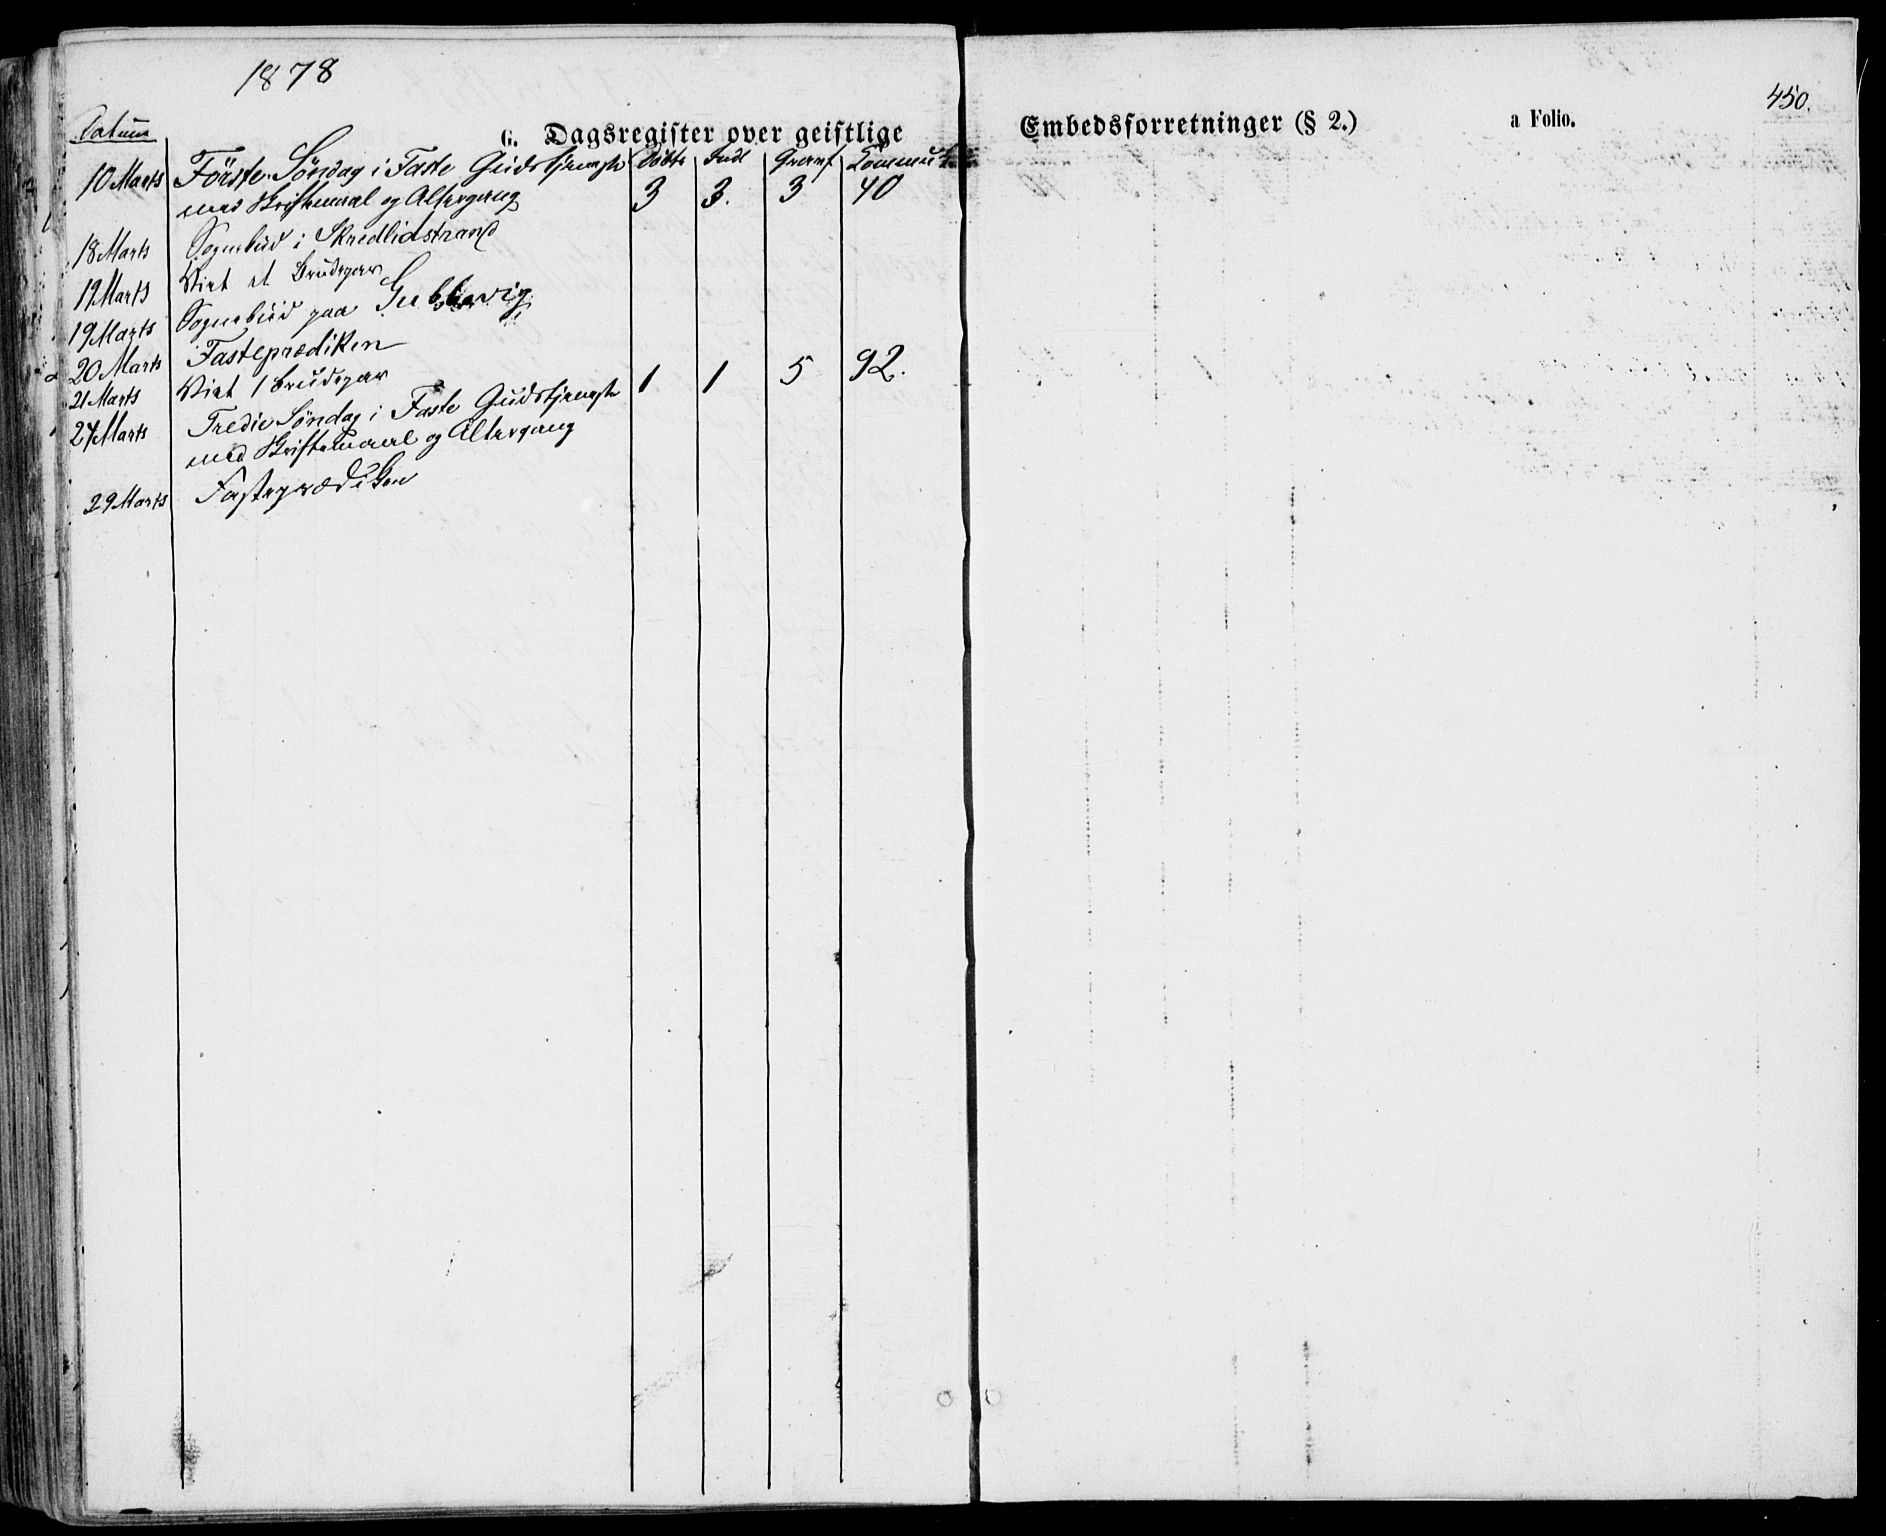 1878
450.
G. Dagsregister over geistlige Embedsforretninger (§ 2.) a Folio.
Datum Döbte Indl Gravf Commun
10 Marts Förste Söndag i Faste Gudstjeneste
med Skriftemaal og Altergang 3 3. 3 40
18 Marts Sognebud i Skredlidstrand
19 Marts Viet et Brudepar
19 Marts Sognebud paa Gubbevig
20 Marts Fasteprædiken
21 Marts Viet 1 Brudepar 1 1 5 92.
24 Marts Tredie Söndag i Faste Gudstjeneste
med Skriftemaal og Altergang
29 Marts Fasteprædiken